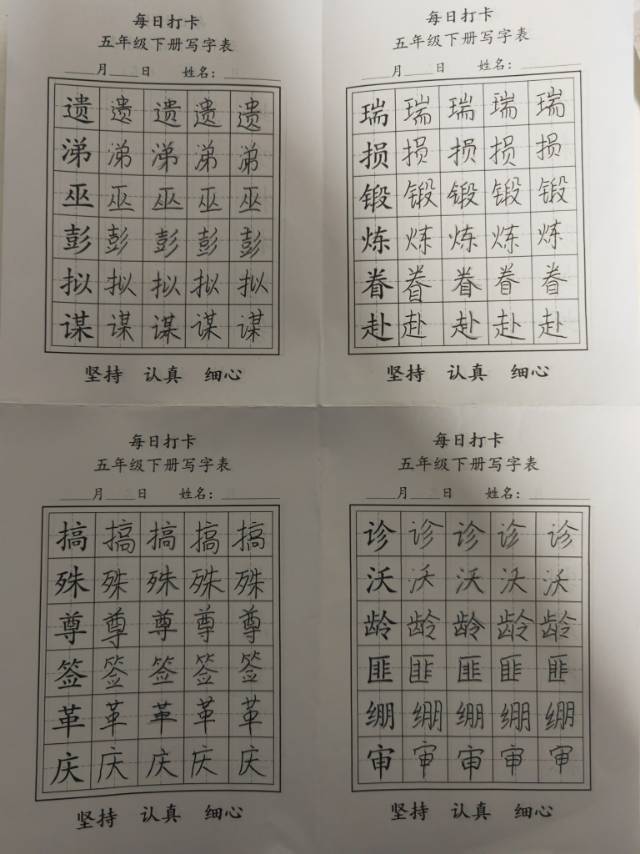 每日打卡
五年级下册写字表
月 日 姓名：
遗 遗 遗 遗 遗
涕 涕 涕 涕 涕
巫 巫 巫 巫 巫
彭 彭 彭 彭 彭
拟 拟 拟 拟 拟
谋 谋 谋 谋 谋
坚持 认真 细心
每日打卡
五年级下册写字表
月 日 姓名：
瑞 瑞 瑞 瑞 瑞
损 损 损 损 损
锻 锻 锻 锻 锻
炼 炼 炼 炼 炼
眷 眷 眷 眷 眷
赴 赴 赴 赴 赴
坚持 认真 细心
每日打卡
五年级下册写字表
月 日 姓名：
搞 搞 搞 搞 搞
殊 殊 殊 殊 殊
尊 尊 尊 尊 尊
签 签 签 签 签
革 革 革 革 革
庆 庆 庆 庆 庆
坚持 认真 细心
每日打卡
五年级下册写字表
月 日 姓名：
诊 诊 诊 诊 诊
沃 沃 沃 沃 沃
龄 龄 龄 龄 龄
匪 匪 匪 匪 匪
绷 绷 绷 绷 绷
审 审 审 审 审
坚持 认真 细心